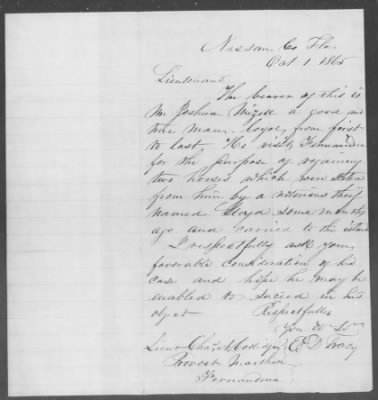 Nassau Co Fla.
Oct 1 1865
Lieutenant
The bearer of this is
Mr Joshua Mizell a good and
true man. loyal, from first
to last. He visits Fernandina
for the purpose of regaining
two horses which were stolen
from him by a notorious thief
named Lloyd some months
ago and carried to the island
I respectfully ask your
favorable consideration of his
case and hope he may be
enabled to succeed in his
object
Respectfully
Your Ob Svt
E D Tracy
Lieut Chas M
Provost Marshal
Fernandina